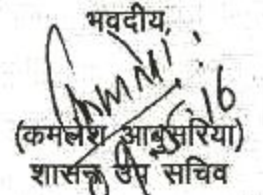 भवदीय,
(कमलेश आबुसरिया)
शासन उप सचिव